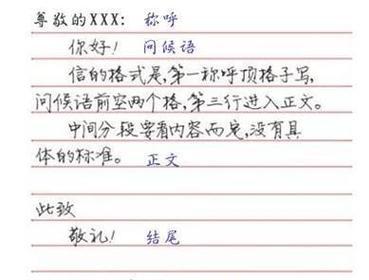 尊敬的XXX: 称呼
你好! 问候语
信的格式是,第一称呼顶格子写,
问候语前空两个格,第三行进入正文。
中间分段要看内容而定,没有具
体的标准。 正文
此致
敬礼! 结尾